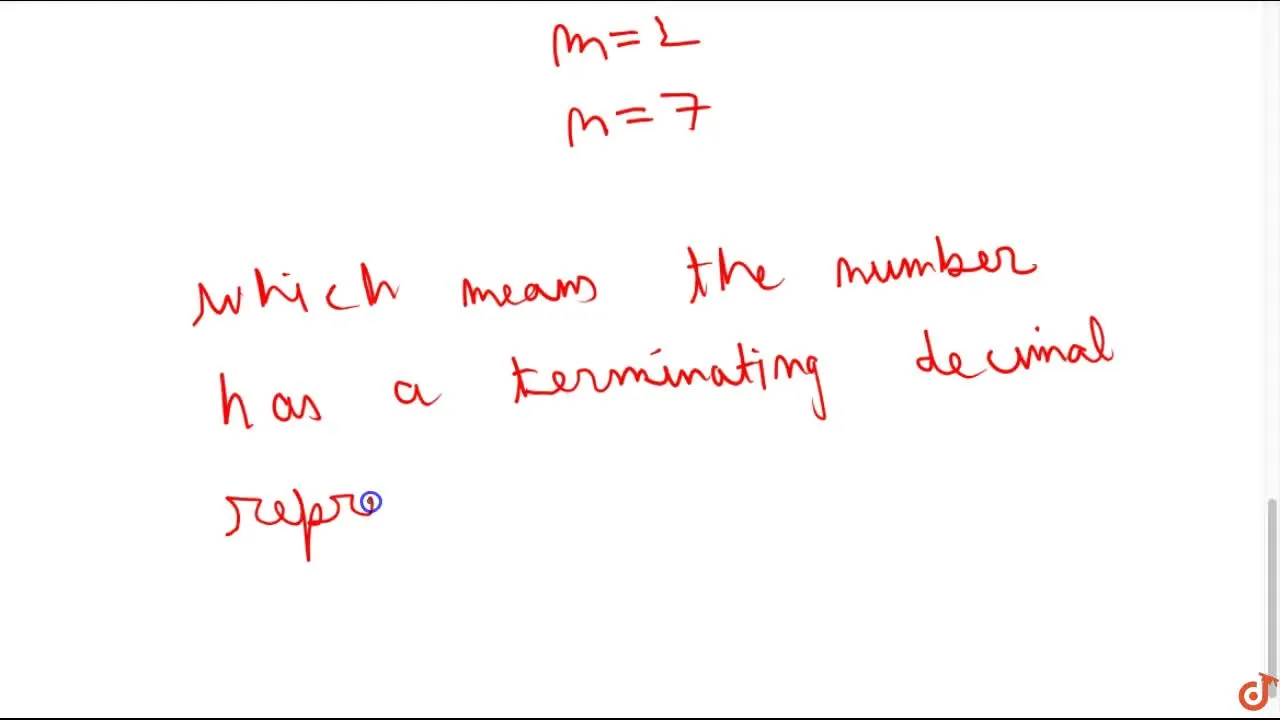 m=2
n=7
which means the number
has a terminating decimal
repre